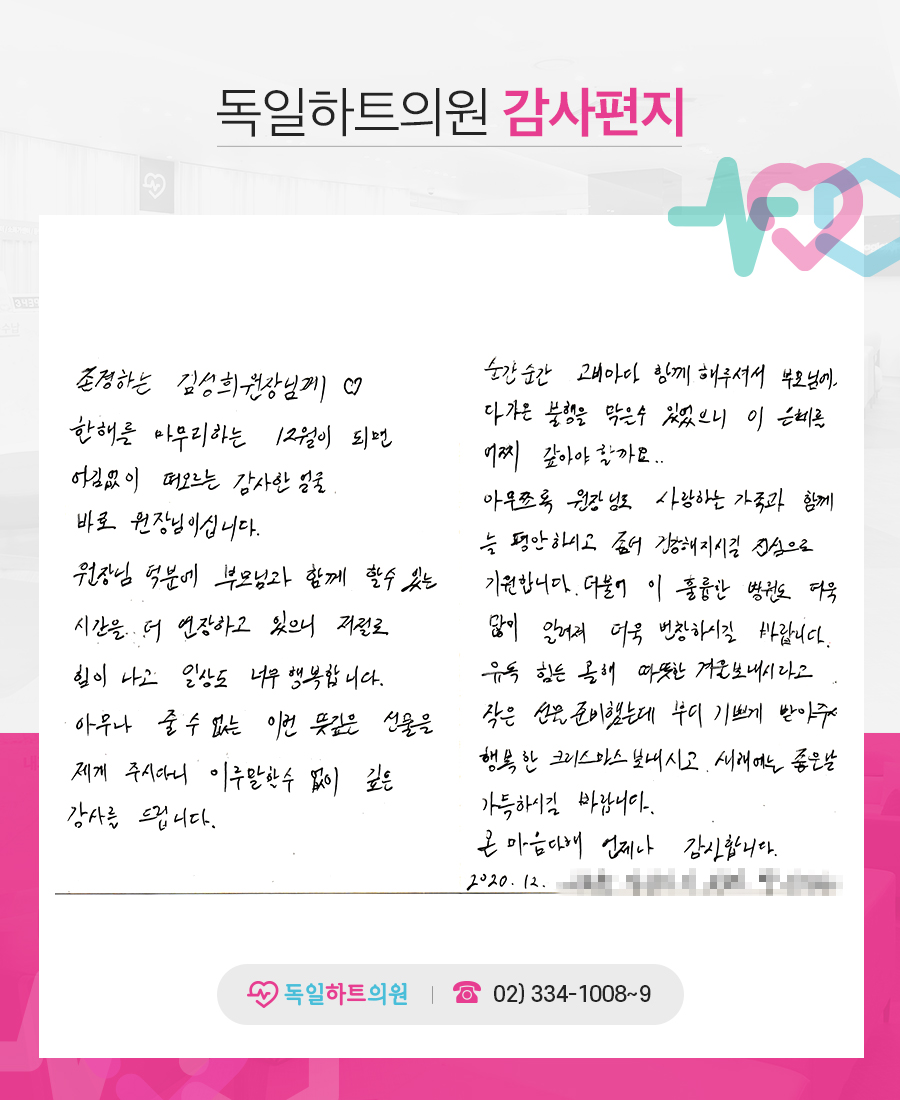 독일하트의원 감사편지
존경하는 김성희원장님께 ♡
한해를 마무리하는 12월이 되면
어김없이 떠오르는 감사한 얼굴
바로 원장님이십니다.
원장님 덕분에 부모님과 함께 할수 있는
시간을 더 연장하고 있으니 저절로
힘이 나고 일상도 너무 행복합니다.
아무나 줄 수 없는 이런 뜻깊은 선물을
제게 주시다니 이루말할수 없이 깊은
감사를 드립니다.
순간순간 고비마다 함께 해주셔서 부모님에.
다가온 불행을 막을수 있었으니 이 은혜를
어찌 갚아야 할까요..
아무쪼록 원장님도 사랑하는 가족과 함께
늘 평안하시고 좀더 건강해지시길 진심으로
기원합니다. 더불어 이 훌륭한 병원도 더욱
많이 알려져 더욱 번창하시길 바랍니다.
유독 힘든 올해 따뜻한 겨울보내시라고
작은 선물 준비했는데 부디 기쁘게 받아주셔
행복한 크리스마스 보내시고 새해에는 좋은날
가득하시길 바랍니다.
온 마음다해 언제나 감사합니다.
2020. 12.
독일하트의원
02) 334-1008~9